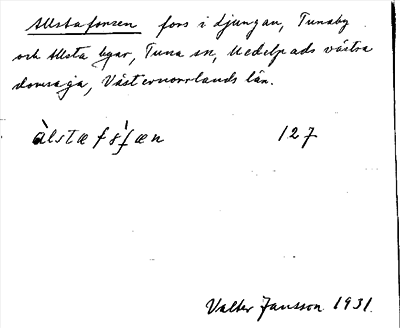 Allstaforsen fors i Ljungan, Tunaby
och Allsta byar, Tuna sn, Medelpads västra
domsaga, Västernorrlands län.
àlstæf 127
Valter Jansson 1931.